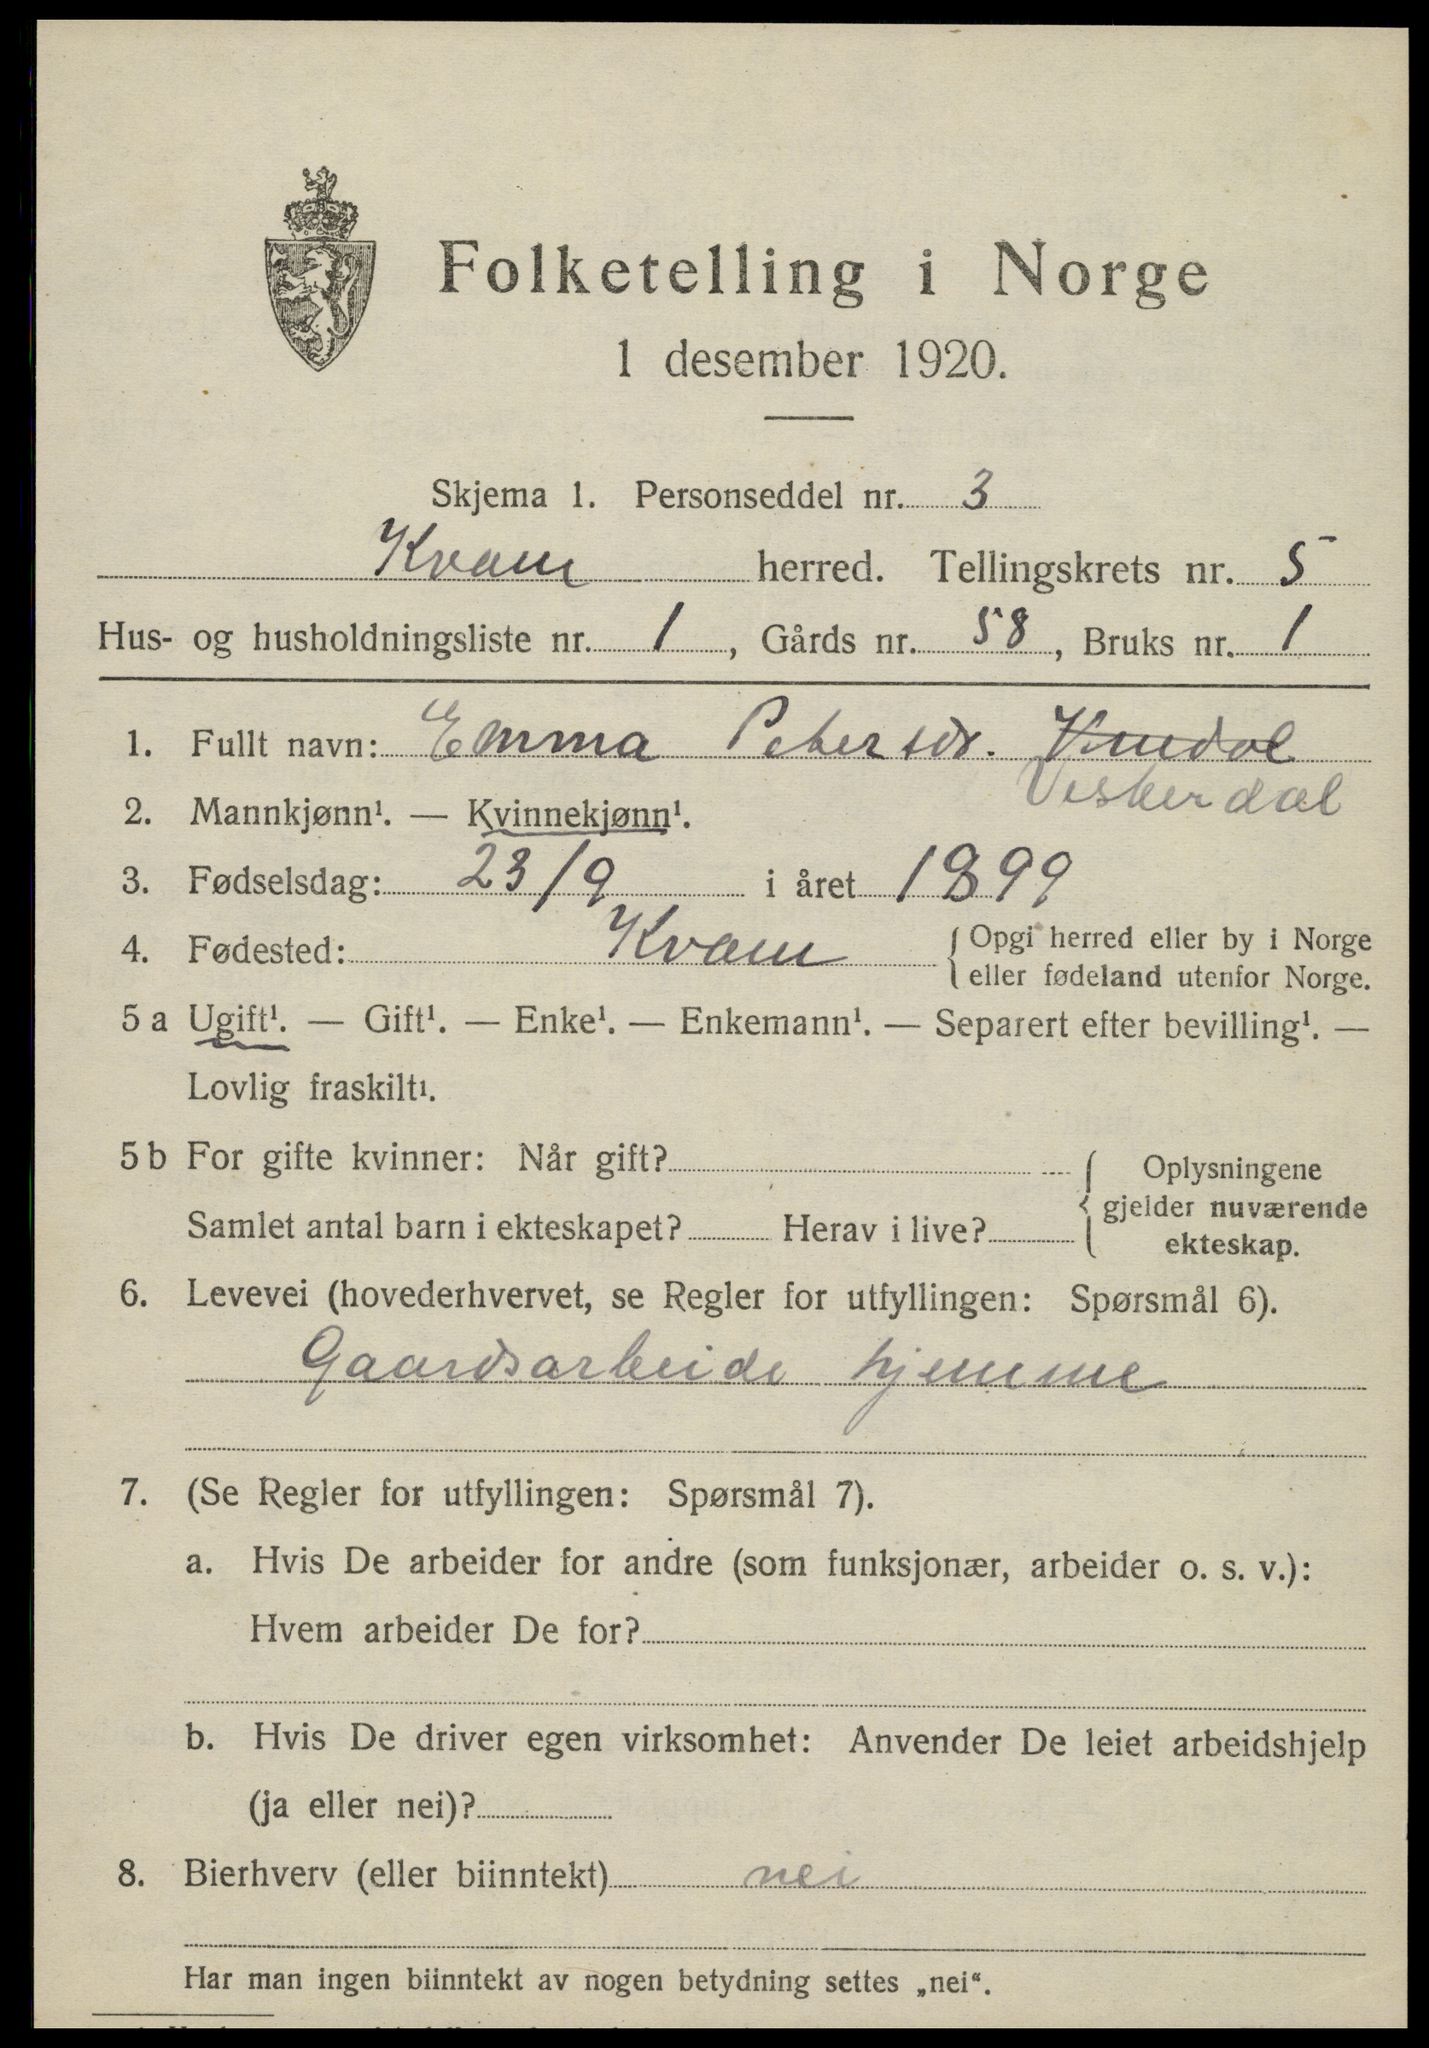 Folketelling i Norge
1 desember 1920.
Skjema 1. Personseddel nr. 3
Kvam herred. Tellingskrets nr. 5
Hus- og husholdningsliste nr. 1, Gårds nr. 58, Bruks nr. 1
1. Fullt navn: Emma Petersdr.
Vesterdal
2. Mannkjønn¹. — Kvinnekjønn¹.
3. Fødselsdag: 23/9 i året 1899
4. Fødested: Kvam { Opgi herred eller by i Norge
eller fødeland utenfor Norge.
5 a Ugift¹. — Gift¹. — Enke¹. — Enkemann¹. — Separert efter bevilling¹. —
Lovlig fraskilt¹.
5 b For gifte kvinner: Når gift? { Oplysningene
gjelder nuværende
Samlet antal barn i ekteskapet? Herav i live?
ekteskap.
6. Levevei (hovederhvervet, se Regler for utfyllingen: Spørsmål 6).
Gaardsarbeide hjemme
7. (Se Regler for utfyllingen: Spørsmål 7).
a. Hvis De arbeider for andre (som funksjonær, arbeider o. s. v.):
Hvem arbeider De for?
b. Hvis De driver egen virksomhet: Anvender De leiet arbeidshjelp
(ja eller nei)?
8. Bierhverv (eller biinntekt) nei
Har man ingen biinntekt av nogen betydning settes „nei“.